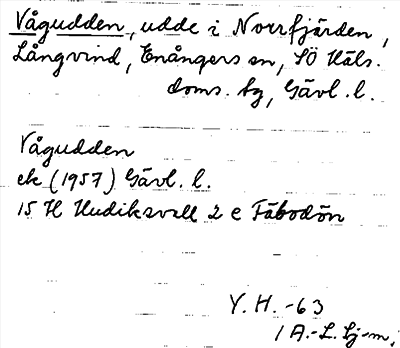 Vågudden, udde i Norrfjärden,
Långvind, Enångers sn, SÖ Häls.
doms. tg, Gävl. l.
Vågudden
ek (1957) Gävl. l.
15 H Hudiksvall 2 e Fäbodön
Y. H. -63
/ A.-L. Lj-m,